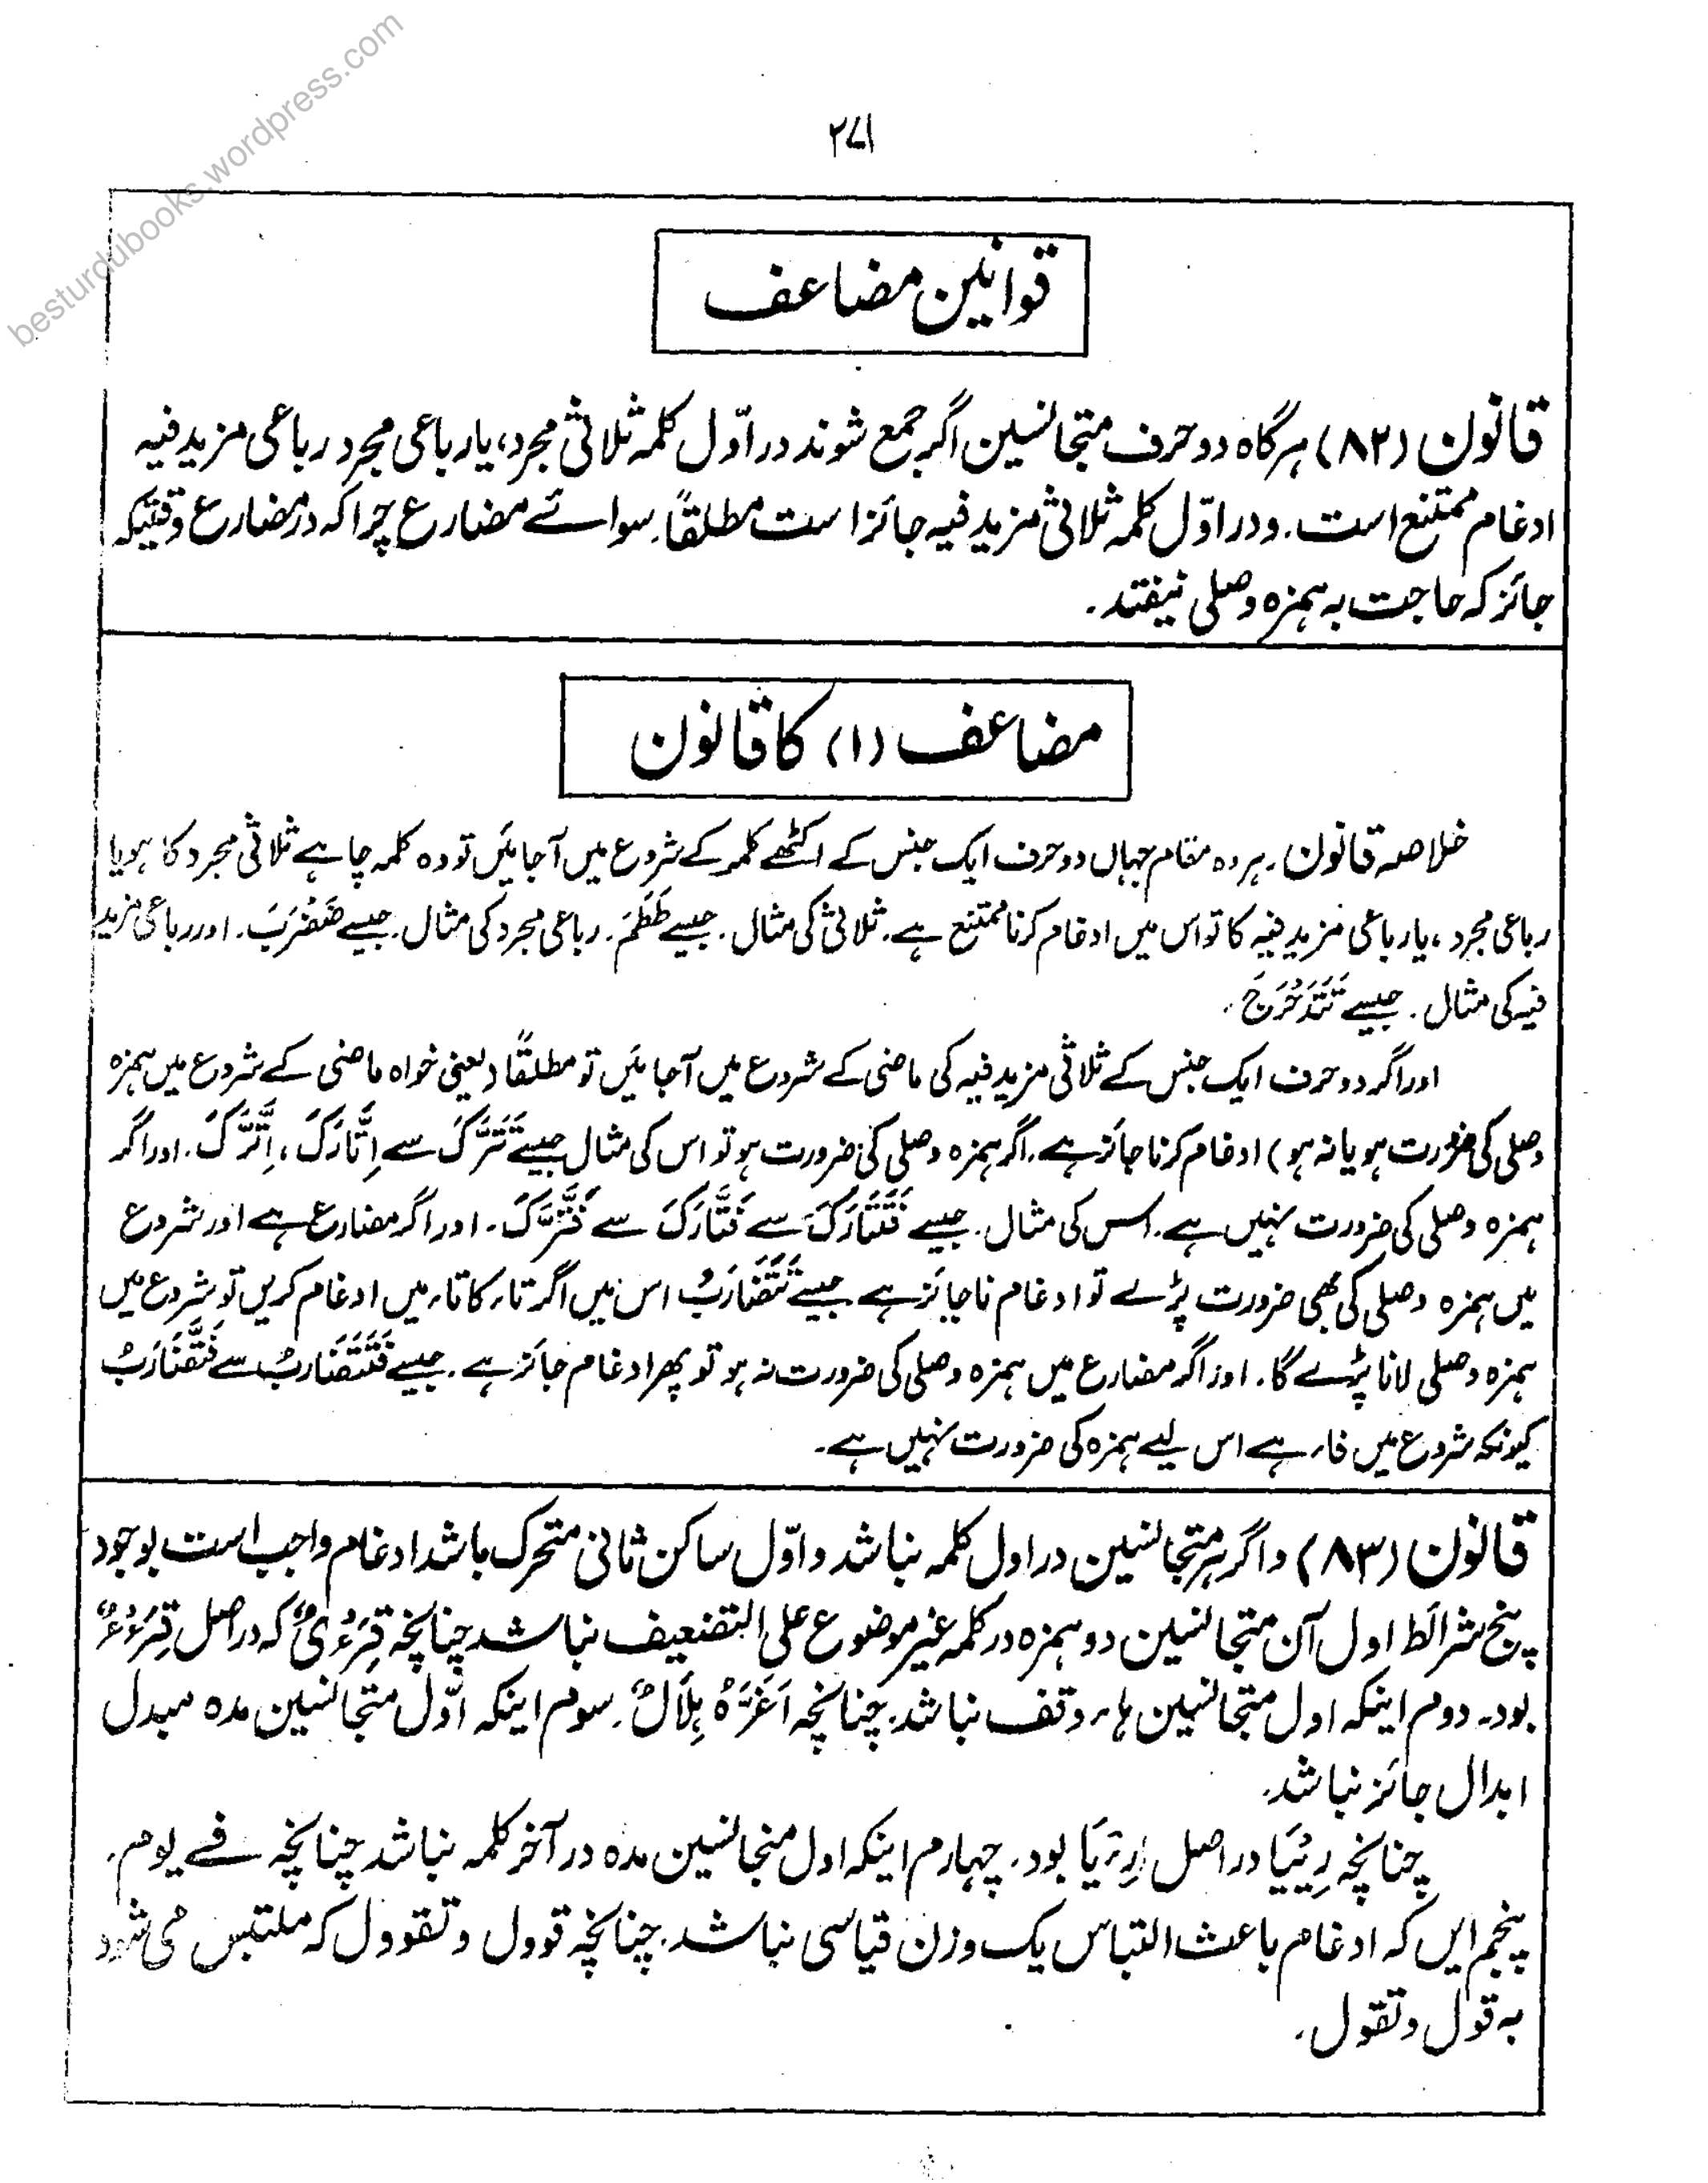 besturdubooks.wordpress.com
۲۷۱
قوانین مضاعف
قانون (۸۲) ہرگاہ دو حرف متجانسین اگر جمع شوند در اوّل کلمہ ثلاثی مجرد، یا رباعی مجرد رباعی مزید فیہ
ادغام ممتنع است۔ و در اوّل کلمہ ثلاثی مزید فیہ جائز است مطلقاً سوائے مضارع چراکہ در مضارع وقتیکہ
جائز کہ حاجت بہ ہمزہ وصلی نیفتد۔
مضاعف (۱) کا قانون
خلاصہ قانون۔ ہر وہ مقام جہاں دو حرف ایک جنس کے اکٹھے کلمہ کے شروع میں آجائیں تو وہ کلمہ چاہے ثلاثی مجرد کا ہو یا
رباعی مجرد، یا رباعی مزید فیہ کا تو اس میں ادغام کرنا ممتنع ہے۔ ثلاثی کی مثال۔ جیسے طَطَمَ۔ رباعی مجرد کی مثال۔ جیسے ضَضْرَبَ۔ اور رباعی مزید
فیہ کی مثال۔ جیسے تَتَدَحْرَجَ۔
اور اگر دو حرف ایک جنس کے ثلاثی مزید فیہ کی ماضی کے شروع میں آجائیں تو مطلقاً (یعنی خواہ ماضی کے شروع میں ہمزہ
وصلی کی ضرورت ہو یا نہ ہو) ادغام کرنا جائز ہے۔ اگر ہمزہ وصلی کی ضرورت ہو تو اس کی مثال جیسے تَتَرَّکَ سے اِتَّارَکَ، اِتَّرَّکَ۔ اور اگر
ہمزہ وصلی کی ضرورت نہیں ہے۔ اس کی مثال۔ جیسے فَتَتَارَکَ سے فَتَّارَکَ سے فَتَّرَّکَ۔ اور اگر مضارع ہے اور شروع
میں ہمزہ وصلی کی بھی ضرورت پڑے تو ادغام ناجائز ہے۔ جیسے تَتَضَارَبُ اس میں اگر تاء کا تاء میں ادغام کریں تو شروع میں
ہمزہ وصلی لانا پڑے گا۔ اور اگر مضارع میں ہمزہ وصلی کی ضرورت نہ ہو تو پھر ادغام جائز ہے۔ جیسے فَتَتَضَارَبُ سے فَتَّضَارَبُ
کیونکہ شروع میں فاء ہے اس لیے ہمزہ کی ضرورت نہیں ہے۔
قانون (۸۳) و اگر ہر متجانسین در اول کلمہ نباشد و اوّل ساکن ثانی متحرک باشد ادغام واجب است بوجود
پنج شرائط اول آن متجانسین دو ہمزہ در کلمہ غیر موضوع علی التضعیف نباشد چنانچہ قِرَءْیٌ کہ در اصل قِرَءْءٌ
بود۔ دوم اینکہ اول متجانسین ہاء وقف نباشد۔ چنانچہ اَغَرَّہْ ہِلَالٌ۔ سوم اینکہ اوّل متجانسین مدہ مبدل
ابدال جائز نباشد۔
چنانچہ رِیْیَیا در اصل رِءْیَا بود۔ چہارم اینکہ اول متجانسین مدہ در آخر کلمہ نباشد چنانچہ فے یوم۔
پنجم ایں کہ ادغام باعث التباس یک وزن قیاسی نباشد۔ چنانچہ قوول و تقوول کہ ملتبس می شود
بہ قول و تقول۔